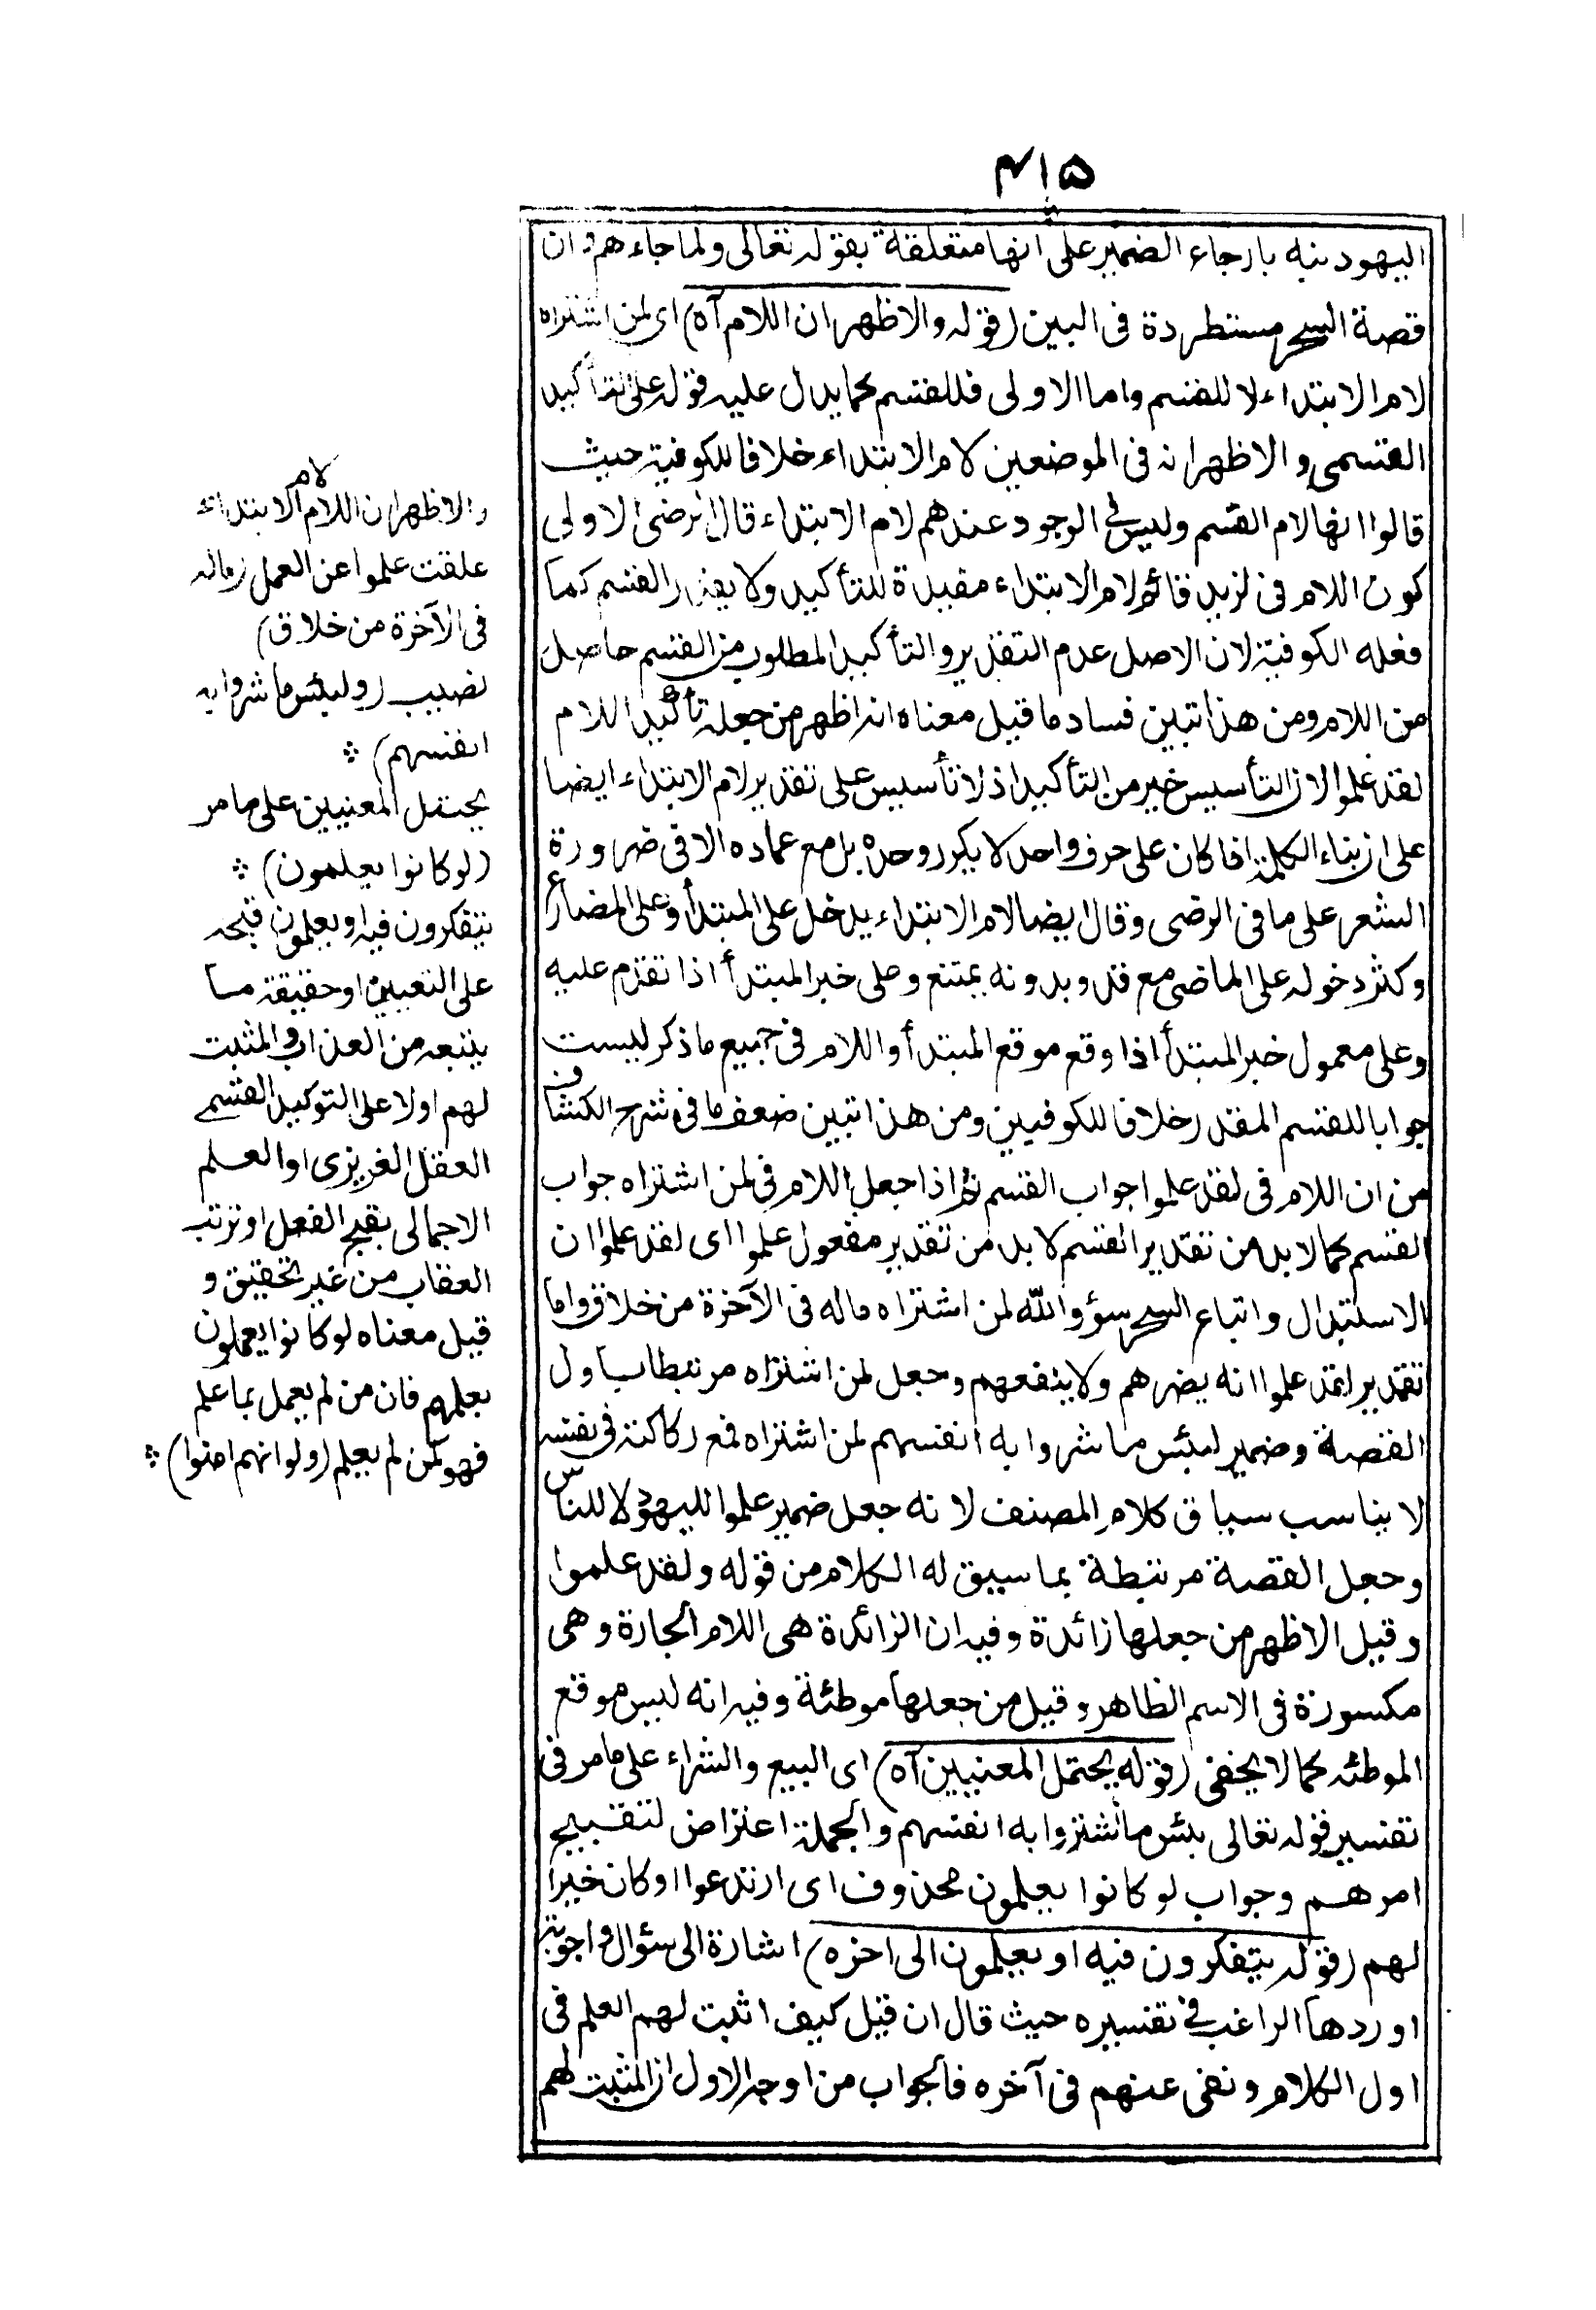 ٤١٥
اليهود بنه بارجاء الضمير على انها متعلقة بقوله تعالى ولما جاءهم وان
قصة السحر مستطردة فى البين (قوله والاظهر ان اللام آه) اى لمن اشتراه
لام الابتداء لا للقسم واما الاولى فللقسم كما يدل عليه قوله على التأكيد
القسمى والاظهر انه فى الموضعين لام الابتداء خلافا للكوفية حيث
قالوا انها لام القسم وليس فى الوجود عندهم لام الابتداء قال الرضى الاولى
كون اللام فى لزيد قائم لام الابتداء مفيدة للتأكيد ولا يقدر القسم كما
فعله الكوفية لان الاصل عدم التقدير والتأكيد المطلوب من القسم حاصل
من اللام ومن هذا تبين فساد ما قيل معناه انه اظهر من جعله تأكيد اللام
لقد علموا لان التأسيس خير من التأكيد اذ لا تأسيس على تقدير لام الابتداء ايضا
على ان بناء الكلمة اذا كان على حرف واحد لا يكرر وحده بل مع عماده الا فى ضرورة
الشعر على ما فى الرضى وقال ايضا لام الابتداء يدخل على المبتدأ وعلى المضارع
وكثر دخوله على الماضى مع قد وبدونه يمتنع وعلى خبر المبتدأ اذا تقدم عليه
وعلى معمول خبر المبتدأ اذا وقع موقع المبتدأ واللام فى جميع ما ذكر ليست
جوابا للقسم المقدر خلافا للكوفيين ومن هذا تبين ضعف ما فى شرح الكشاف
من ان اللام فى لقد علموا جواب القسم ثم اذا جعل اللام فى لمن اشتراه جواب
القسم كما لا بد من تقدير القسم لا بد من تقدير مفعول علموا اى لقد علموا ان
الاستبدال واتباع السحر سؤ والله لمن اشتراه ماله فى الآخرة من خلاق واما
تقدير لقد علموا انه يضرهم ولا ينفعهم وجعل لمن اشتراه مرتبطا باول
القصة وضمير لبئس ما شروا به انفسهم لمن اشتراه فمع ركاكته فى نفسه
لا يناسب سياق كلام المصنف لانه جعل ضمير علموا لليهود لا للناس
وجعل القصة مرتبطة بما سيق له الكلام من قوله ولقد علموا
وقيل الاظهر من جعلها زائدة وفيه ان الزائدة هى اللام الجارة وهى
مكسورة فى الاسم الظاهر وقيل من جعلها موطئة وفيه انه ليس موقع
الموطئه كما لا يخفى (قوله يحتمل المعنيين آه) اى البيع والشراء على ما مر فى
تفسير قوله تعالى بئس ما اشتروا به انفسهم والجملة اعتراض لتقبيح
امرهم وجواب لو كانوا يعلمون محذوف اى ارتدعوا او كان خيرا
لهم (قوله يتفكرون فيه او يعلمون الى اخره) اشارة الى سؤال واجوبة
اوردها الراغب فى تفسيره حيث قال ان قيل كيف اثبت لهم العلم فى
اول الكلام ونفى عنهم فى آخره فالجواب من اوجه الاول ان المثبت لهم
والاظهر ان اللام لام الابتداء
علقت علموا عن العمل (ماله
فى الآخرة من خلاق)
نصيب (ولبئس ما شروا به
انفسهم) ؞
يحتمل المعنيين على ما مر
(لو كانوا يعلمون) ؞
يتفكرون فيه او يعلمون قبحه
على التعيين او حقيقة ما
يتبعه من العذاب والمثبت
لهم اولا على التوكيد القسمى
العقل الغريزى او العلم
الاجمالى بقبح الفعل او ترتب
العقاب من غير تحقيق و
قيل معناه لو كانوا يعملون
بعلمهم فان من لم يعمل بما علم
فهو كمن لم يعلم (ولو انهم امنوا) ؞